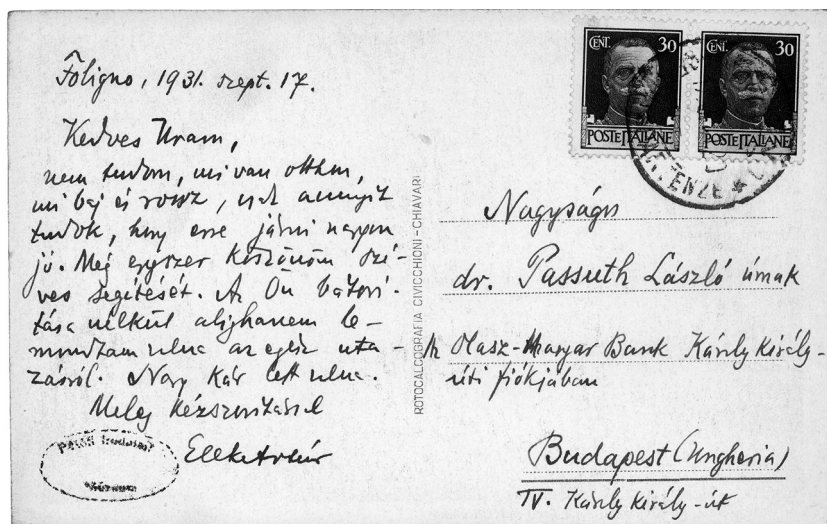 Foligno, 1931. szept. 17.
Kedves Uram,
nem tudom, mi van otthon,
mi baj és rossz, csak annyit
tudok, hogy erre járni nagyon
jó. Még egyszer köszönöm szí-
ves segítését. Az Ön bátorí-
tása nélkül alighanem le-
mondtam volna az egész uta-
zásról. Nagy kár lett volna.
Meleg kézszorítással
Elek Artúr
Petőfi Irodalmi
Múzeum
ROTOCALCOGRAFIA CIVICCHIONI - CHIAVARI
CENT. 30
POSTE ITALIANE
CENT. 30
POSTE ITALIANE
Nagyságos
dr. Passuth László úrnak
Olasz-Magyar Bank Károly Király-
úti fiókjában
Budapest (Ungheria)
IV. Károly Király-út